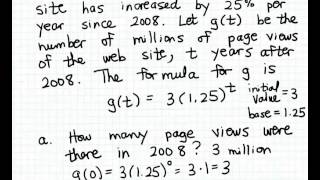 site has increased by 25% per
year since 2008. Let g(t) be the
number of millions of page views
of the web site, t years after
2008. The formula for g is
g(t) = 3(1.25)^t initial value = 3
base = 1.25
a. How many page views were
there in 2008? 3 million
g(0) = 3(1.25)^0 = 3·1 = 3